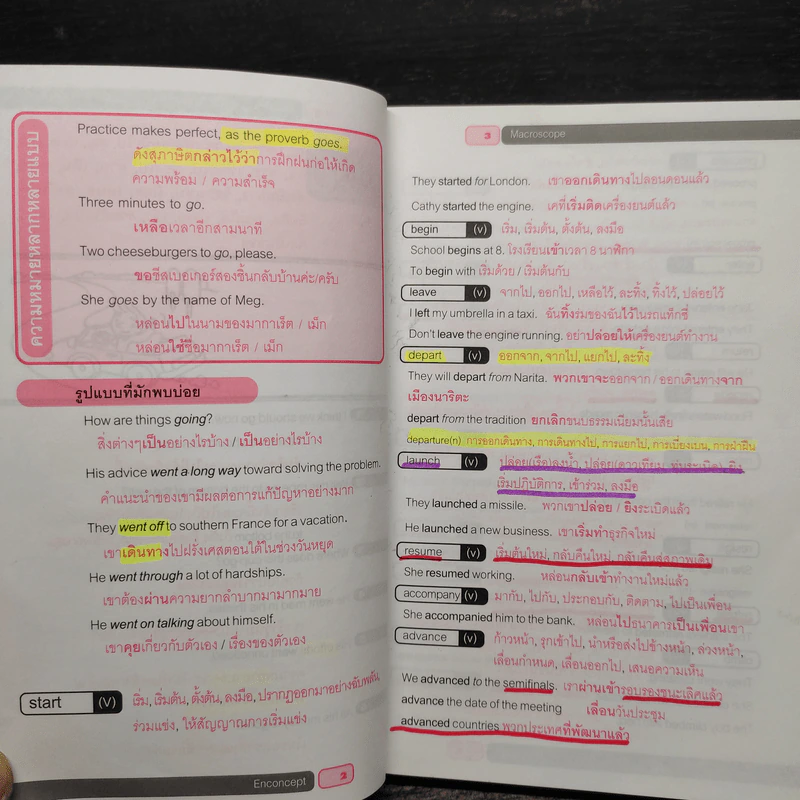 ความหมายหลากหลายแบบ
Practice makes perfect, as the proverb goes.
ดังสุภาษิตกล่าวไว้ว่าการฝึกฝนก่อให้เกิด
ความพร้อม / ความสำเร็จ
Three minutes to go.
เหลือเวลาอีกสามนาที
Two cheeseburgers to go, please.
ขอชีสเบอเกอร์สองชิ้นกลับบ้านค่ะ/ครับ
She goes by the name of Meg.
หล่อนไปในนามของมากาเร็ต / เม็ก
หล่อนใช้ชื่อมากาเร็ต / เม็ก
รูปแบบที่มักพบบ่อย
How are things going?
สิ่งต่างๆเป็นอย่างไรบ้าง / เป็นอย่างไรบ้าง
His advice went a long way toward solving the problem.
คำแนะนำของเขามีผลต่อการแก้ปัญหาอย่างมาก
They went off to southern France for a vacation.
เขาเดินทางไปฝรั่งเศสตอนใต้ในช่วงวันหยุด
He went through a lot of hardships.
เขาต้องผ่านความยากลำบากมามากมาย
He went on talking about himself.
เขาคุยเกี่ยวกับตัวเอง / เรื่องของตัวเอง
start (v) เริ่ม, เริ่มต้น, ตั้งต้น, ลงมือ, ปรากฏออกมาอย่างฉับพลัน,
ร่วมแข่ง, ให้สัญญาณการเริ่มแข่ง
Enconcept 2
3 Macroscope
They started for London. เขาออกเดินทางไปลอนดอนแล้ว
Cathy started the engine. เคที่เริ่มติดเครื่องยนต์แล้ว
begin (v) เริ่ม, เริ่มต้น, ตั้งต้น, ลงมือ
School begins at 8. โรงเรียนเข้าเวลา 8 นาฬิกา
To begin with เริ่มด้วย / เริ่มต้นกับ
leave (v) จากไป, ออกไป, เหลือไว้, ละทิ้ง, ทิ้งไว้, ปล่อยไว้
I left my umbrella in a taxi. ฉันทิ้งร่มของฉันไว้ในรถแท็กซี่
Don't leave the engine running. อย่าปล่อยให้เครื่องยนต์ทำงาน
depart (v) ออกจาก, จากไป, แยกไป, ละทิ้ง
They will depart from Narita. พวกเขาจะออกจาก / ออกเดินทางจาก
เมืองนาริตะ
depart from the tradition ยกเลิกขนบธรรมเนียมนั้นเสีย
departure(n) การออกเดินทาง, การเดินทางไป, การแยกไป, การเบี่ยงเบน, การฝ่าฝืน
launch (v) ปล่อย(เรือ)ลงน้ำ, ปล่อย(ดาวเทียม, ขีปนะเบิด), ยิง
เริ่มปฏิบัติการ, เข้าร่วม, ลงมือ
They launched a missile. พวกเขาปล่อย / ยิงระเบิดแล้ว
He launched a new business. เขาเริ่มทำธุรกิจใหม่
resume (v) เริ่มต้นใหม่, กลับคืนใหม่, กลับคืนสู่สภาพเดิม
She resumed working. หล่อนกลับเข้าทำงานใหม่แล้ว
accompany (v) มากับ, ไปกับ, ประกอบกับ, ติดตาม, ไปเป็นเพื่อน
She accompanied him to the bank. หล่อนไปธนาคารเป็นเพื่อนเขา
advance (v) ก้าวหน้า, รุกเข้าไป, นำหรือส่งไปข้างหน้า, ล่วงหน้า,
เลื่อนกำหนด, เลื่อนออกไป, เสนอความเห็น
We advanced to the semifinals. เราผ่านเข้ารอบรองชนะเลิศแล้ว
advance the date of the meeting เลื่อนวันประชุม
advanced countries พวกประเทศที่พัฒนาแล้ว